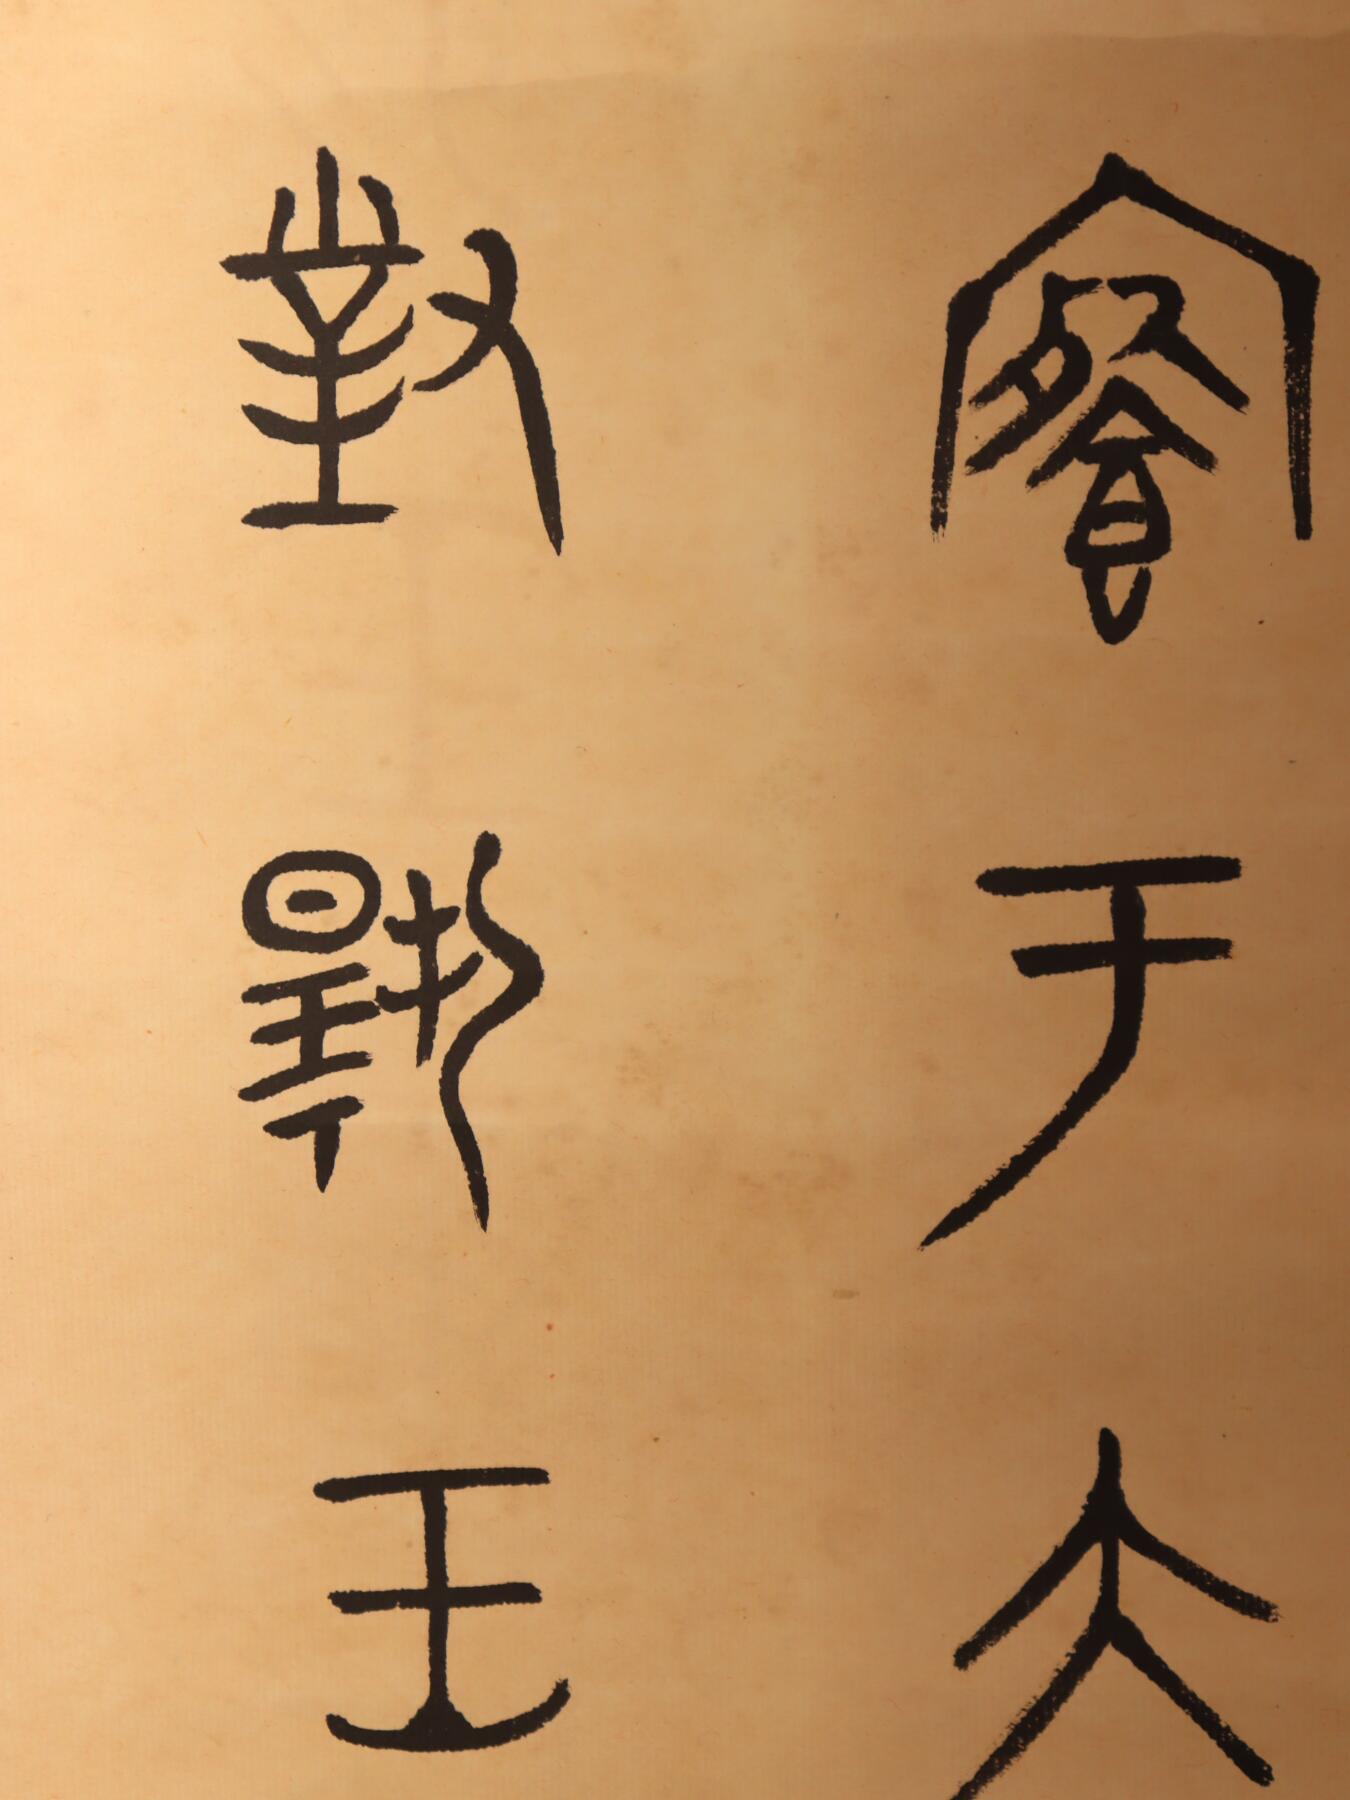 于大
對揚王